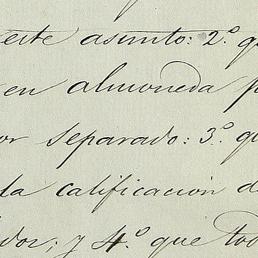 este asunto: 2.º q
en almoneda p
or separado: 3.º qu
da calificacion d
dor; y 4.º que tod